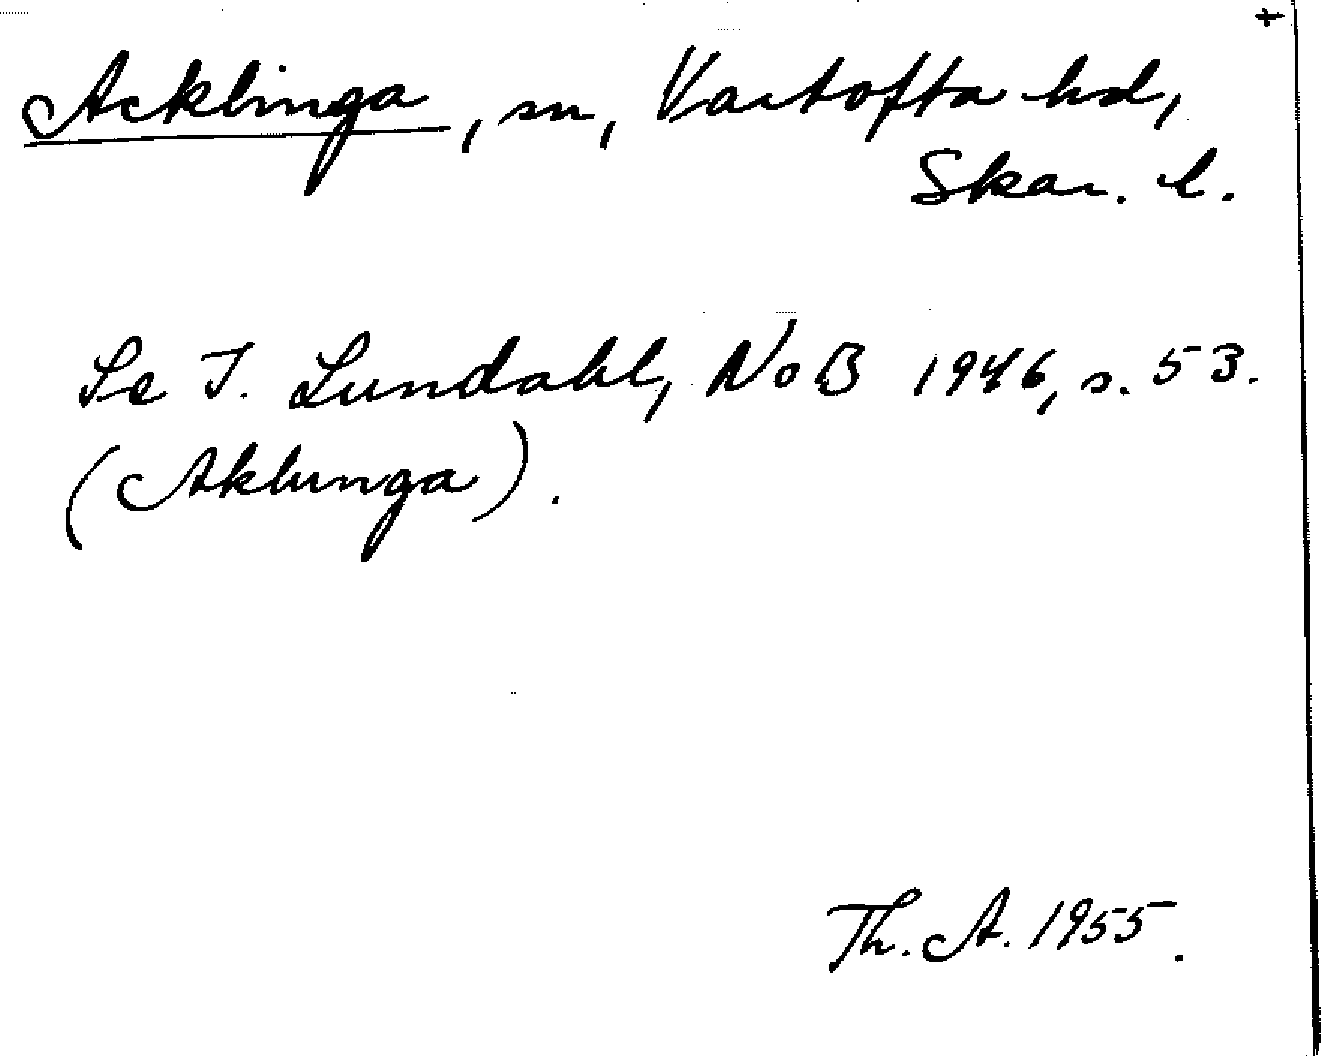 +
Acklinga, sn, Vartofta hd,
Skar. l.
Se I. Lundahl, NoB 1946, s. 53.
(Aklunga).
Th. A. 1955.